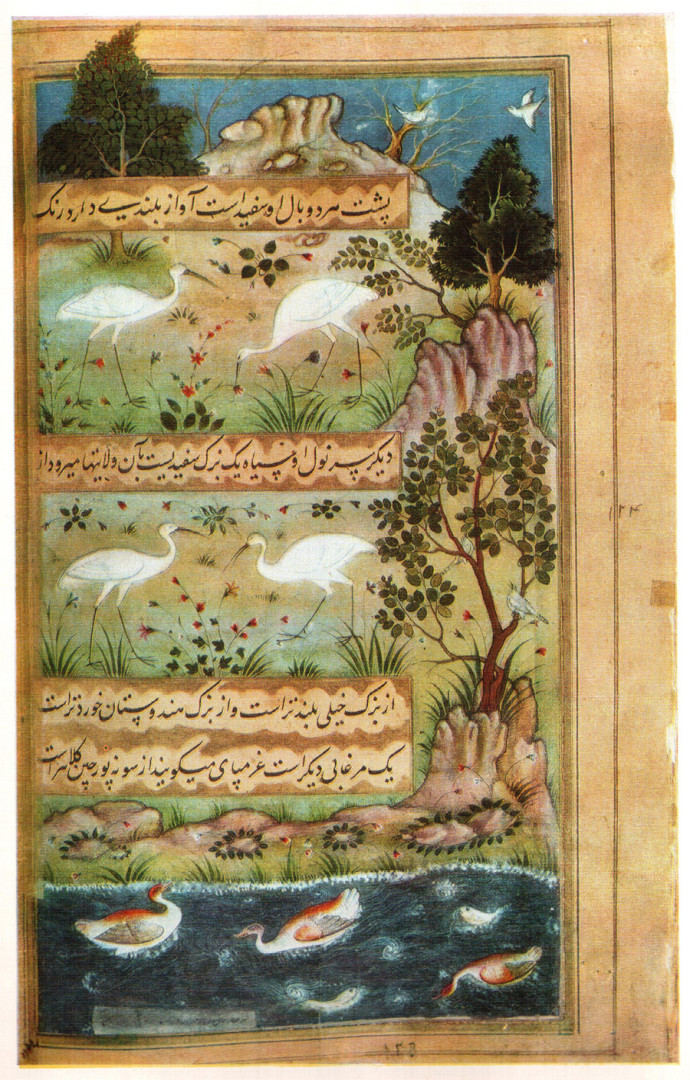 پشت سر و بال او سفید است آواز بلندی دارد رنک
دیکر سر نول او سیاه یک بزک سفیدیست بآن ولایتها میرود از
از بزک خیلی بلندتر است و از بزک هندوستان خوردتر است
یک مرغابی دیکر است غرمپای میکویند از سونه پور چین کلانتر است
۱۲۴